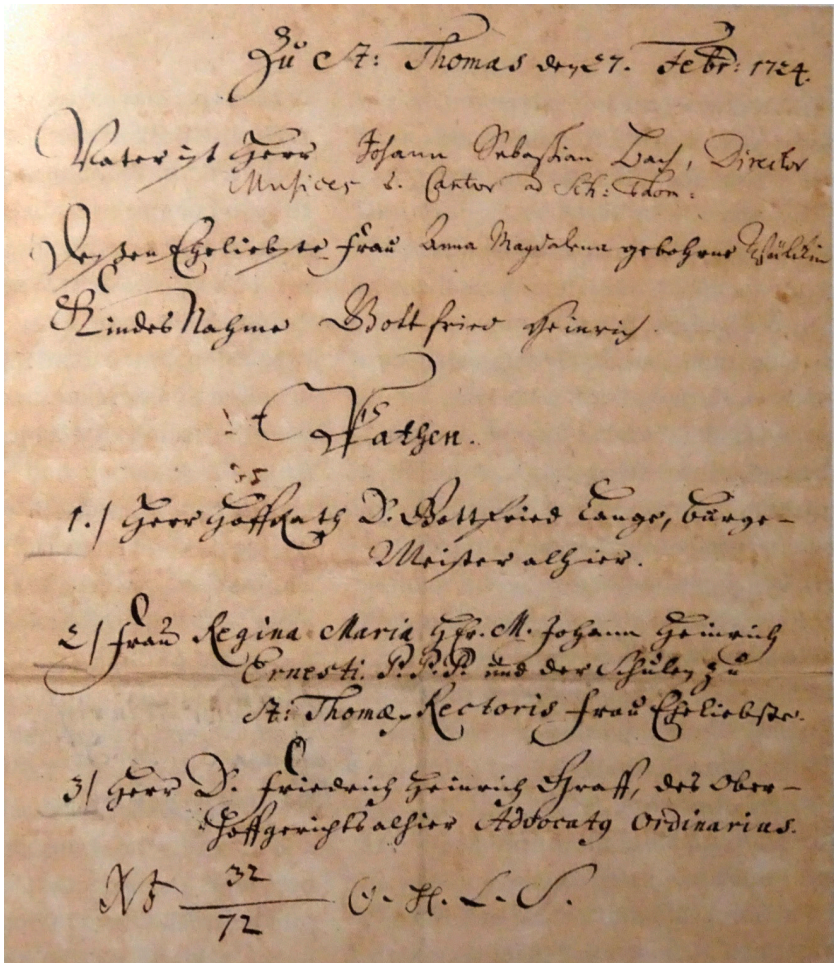 Zu St: Thomas den 27. Febr: 1724.
Vater ist Herr Johann Sebastian Bach, Director
Musices u. Cantor ad Sch: Thom:
Deßen Eheliebste Frau Anna Magdalena gebohrne Wülckin
Kindes Nahme Gottfried Heinrich.
Pathen.
1.) Herr HoffRath D. Gottfried Lange, Bürge-
Meister alhier.
2) Frau Regina Maria Hfr. M. Johann Heinrich
Ernesti. P. P. P. und der Schulen zu
St: Thomæ, Rectoris Frau Eheliebste.
3) Herr D. Friedrich Heinrich Graff, des Ober-
Hoffgerichts alhier Advocatg Ordinarius.
32
72